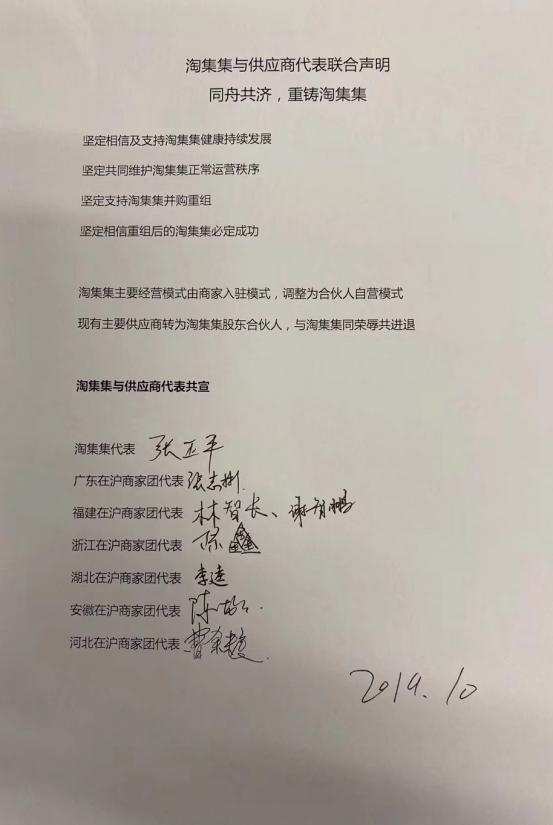 淘集集与供应商代表联合声明
同舟共济，重铸淘集集
坚定相信及支持淘集集健康持续发展
坚定共同维护淘集集正常运营秩序
坚定支持淘集集并购重组
坚定相信重组后的淘集集必定成功
淘集集主要经营模式由商家入驻模式，调整为合伙人自营模式
现有主要供应商转为淘集集股东合伙人，与淘集集同荣辱共进退
淘集集与供应商代表共宣
淘集集代表 张正平
广东在沪商家团代表 张志彬
福建在沪商家团代表 林智长、谢有鹏
浙江在沪商家团代表
湖北在沪商家团代表 李建
安徽在沪商家团代表 陈
河北在沪商家团代表 曹
2019.10